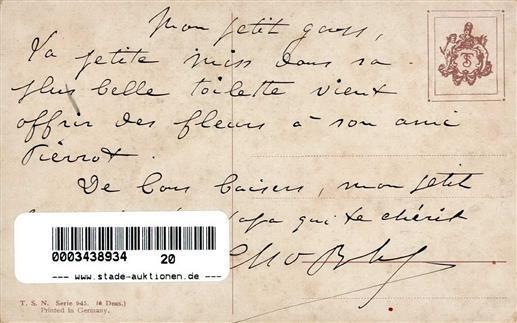 Mon petit goss,
Ta petite miss dans sa
plus belle toilette vient
offrir des fleurs à son ami
Pierrot.
De bons baisers, mon petit
papa qui te chérit
0003438934 20
--- www.stade-auktionen.de ---
T. S. N. Serie 945. (6 Dess.)
Printed in Germany.